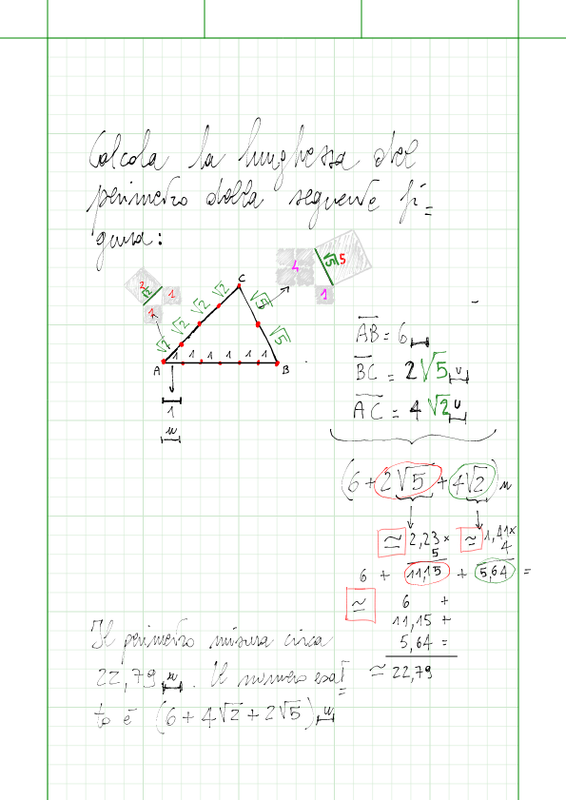 Calcola la lunghezza del
perimetro della seguente fi=
gura:
2 √2 1 1
4 √5 5 1
C
√2 √2 √2 √2
√5 √5
1 1 1 1 1 1
A B
1
u
AB = 6
BC = 2√5 u
AC = 4√2 u
(6 + 2√5 + 4√2) u
≃ 2,23 × 5
≃ 1,41 × 4
6 + 11,15 + 5,64 =
≃ 6 +
11,15 +
5,64 =
≃ 22,79
Il perimetro misura circa
22,79 u. Il numero esat=
to è (6 + 4√2 + 2√5) u